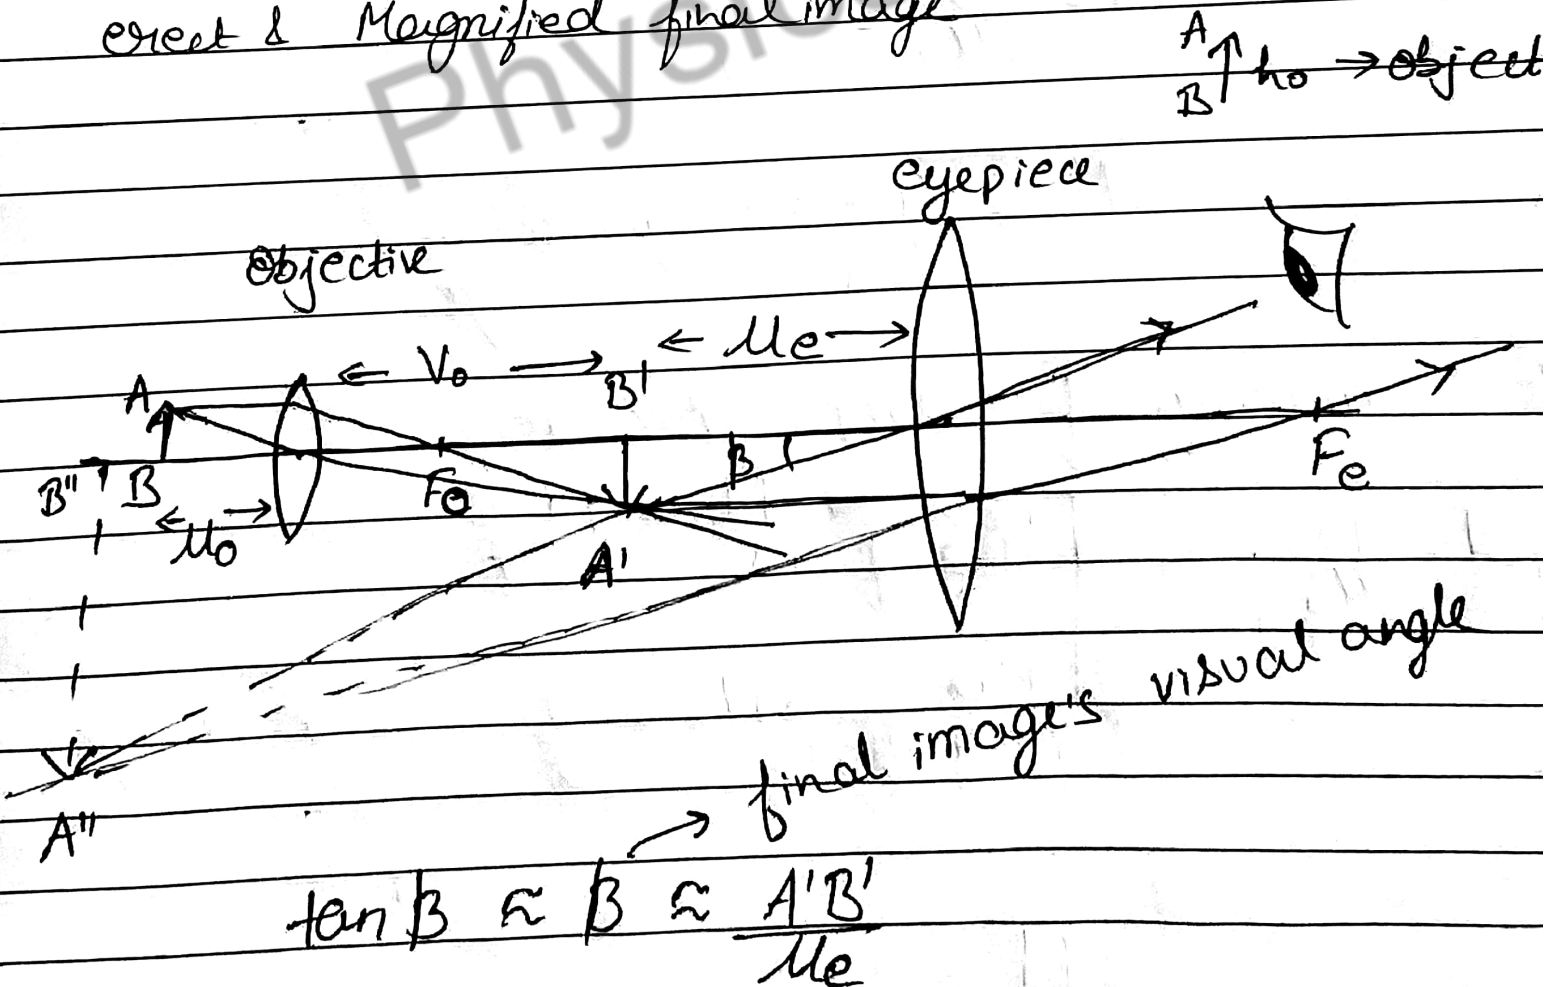 erect & Magnified final image
Physic
A
B
h₀ → object
eyepiece
Objective
← V₀ →
← Ue →
B'
A
B"
B
F₀
β
Fe
← U₀ →
A'
A"
final image's visual angle
tan β ≈ β ≈ A'B' / Ue